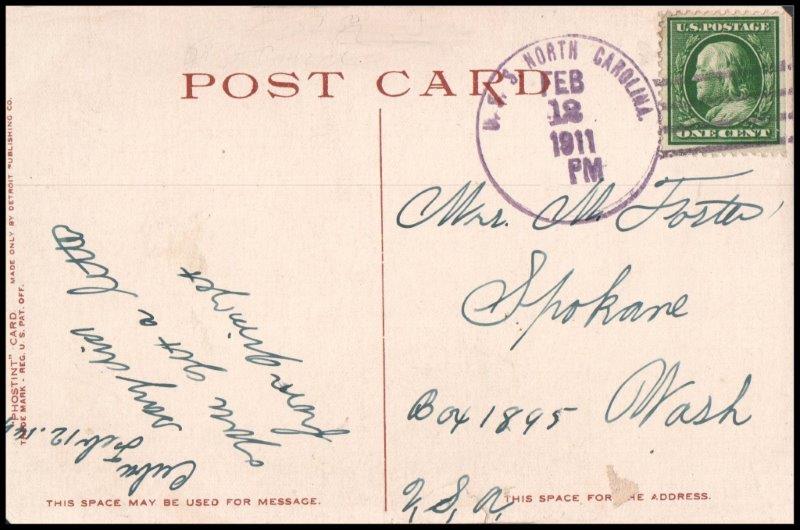 POST CARD
U.S.S. NORTH CAROLINA.
FEB
12
1911
PM
U.S. POSTAGE
ONE CENT
Mrs. M. Foster
Spokane
Box 1895 Wash
U S A
THIS SPACE FOR THE ADDRESS.
Cuba
Feb 12.
say did
you get a letter
from Jim yet
THIS SPACE MAY BE USED FOR MESSAGE.
"PHOSTINT" CARD. MADE ONLY BY DETROIT PUBLISHING CO.
TRADE MARK - REG. U.S. PAT. OFF.